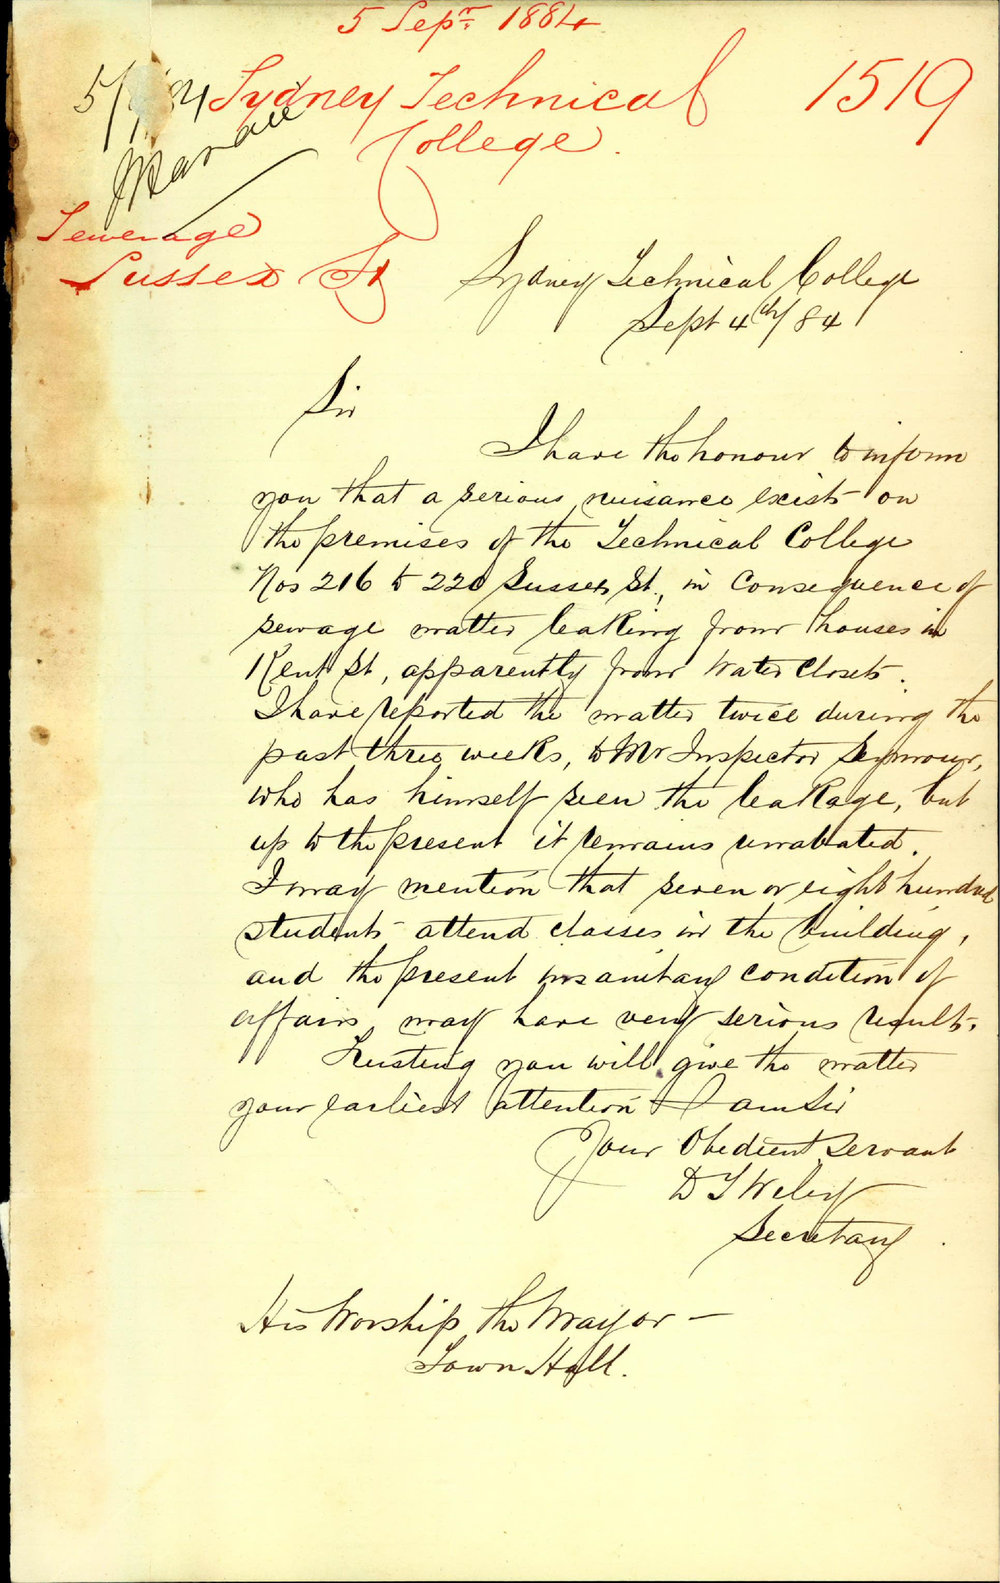 5 Sepr. 1884
Sydney Technical 1519
College.
Sewerage
Sussex St
Sydney Technical College
Sept 4th/84
Sir
I have the honour to inform
you that a serious nuisance exists on
the premises of the Technical College
Nos 216 to 220 Sussex St., in consequence of
sewage matter leaking from houses in
Kent St, apparently from Water Closets.
I have reported the matter twice during the
past three weeks, to Mr Inspector Seymour,
who has himself seen the leakage, but
up to the present it remains unabated.
I may mention that seven or eight hundred
students attend classes in the building,
and the present insanitary condition of
affairs, may have very serious results.
Trusting you will give the matter
your earliest attention I am Sir
Your Obedient Servant
D T Wiley
Secretary
His Worship the Mayor —
Town Hall.